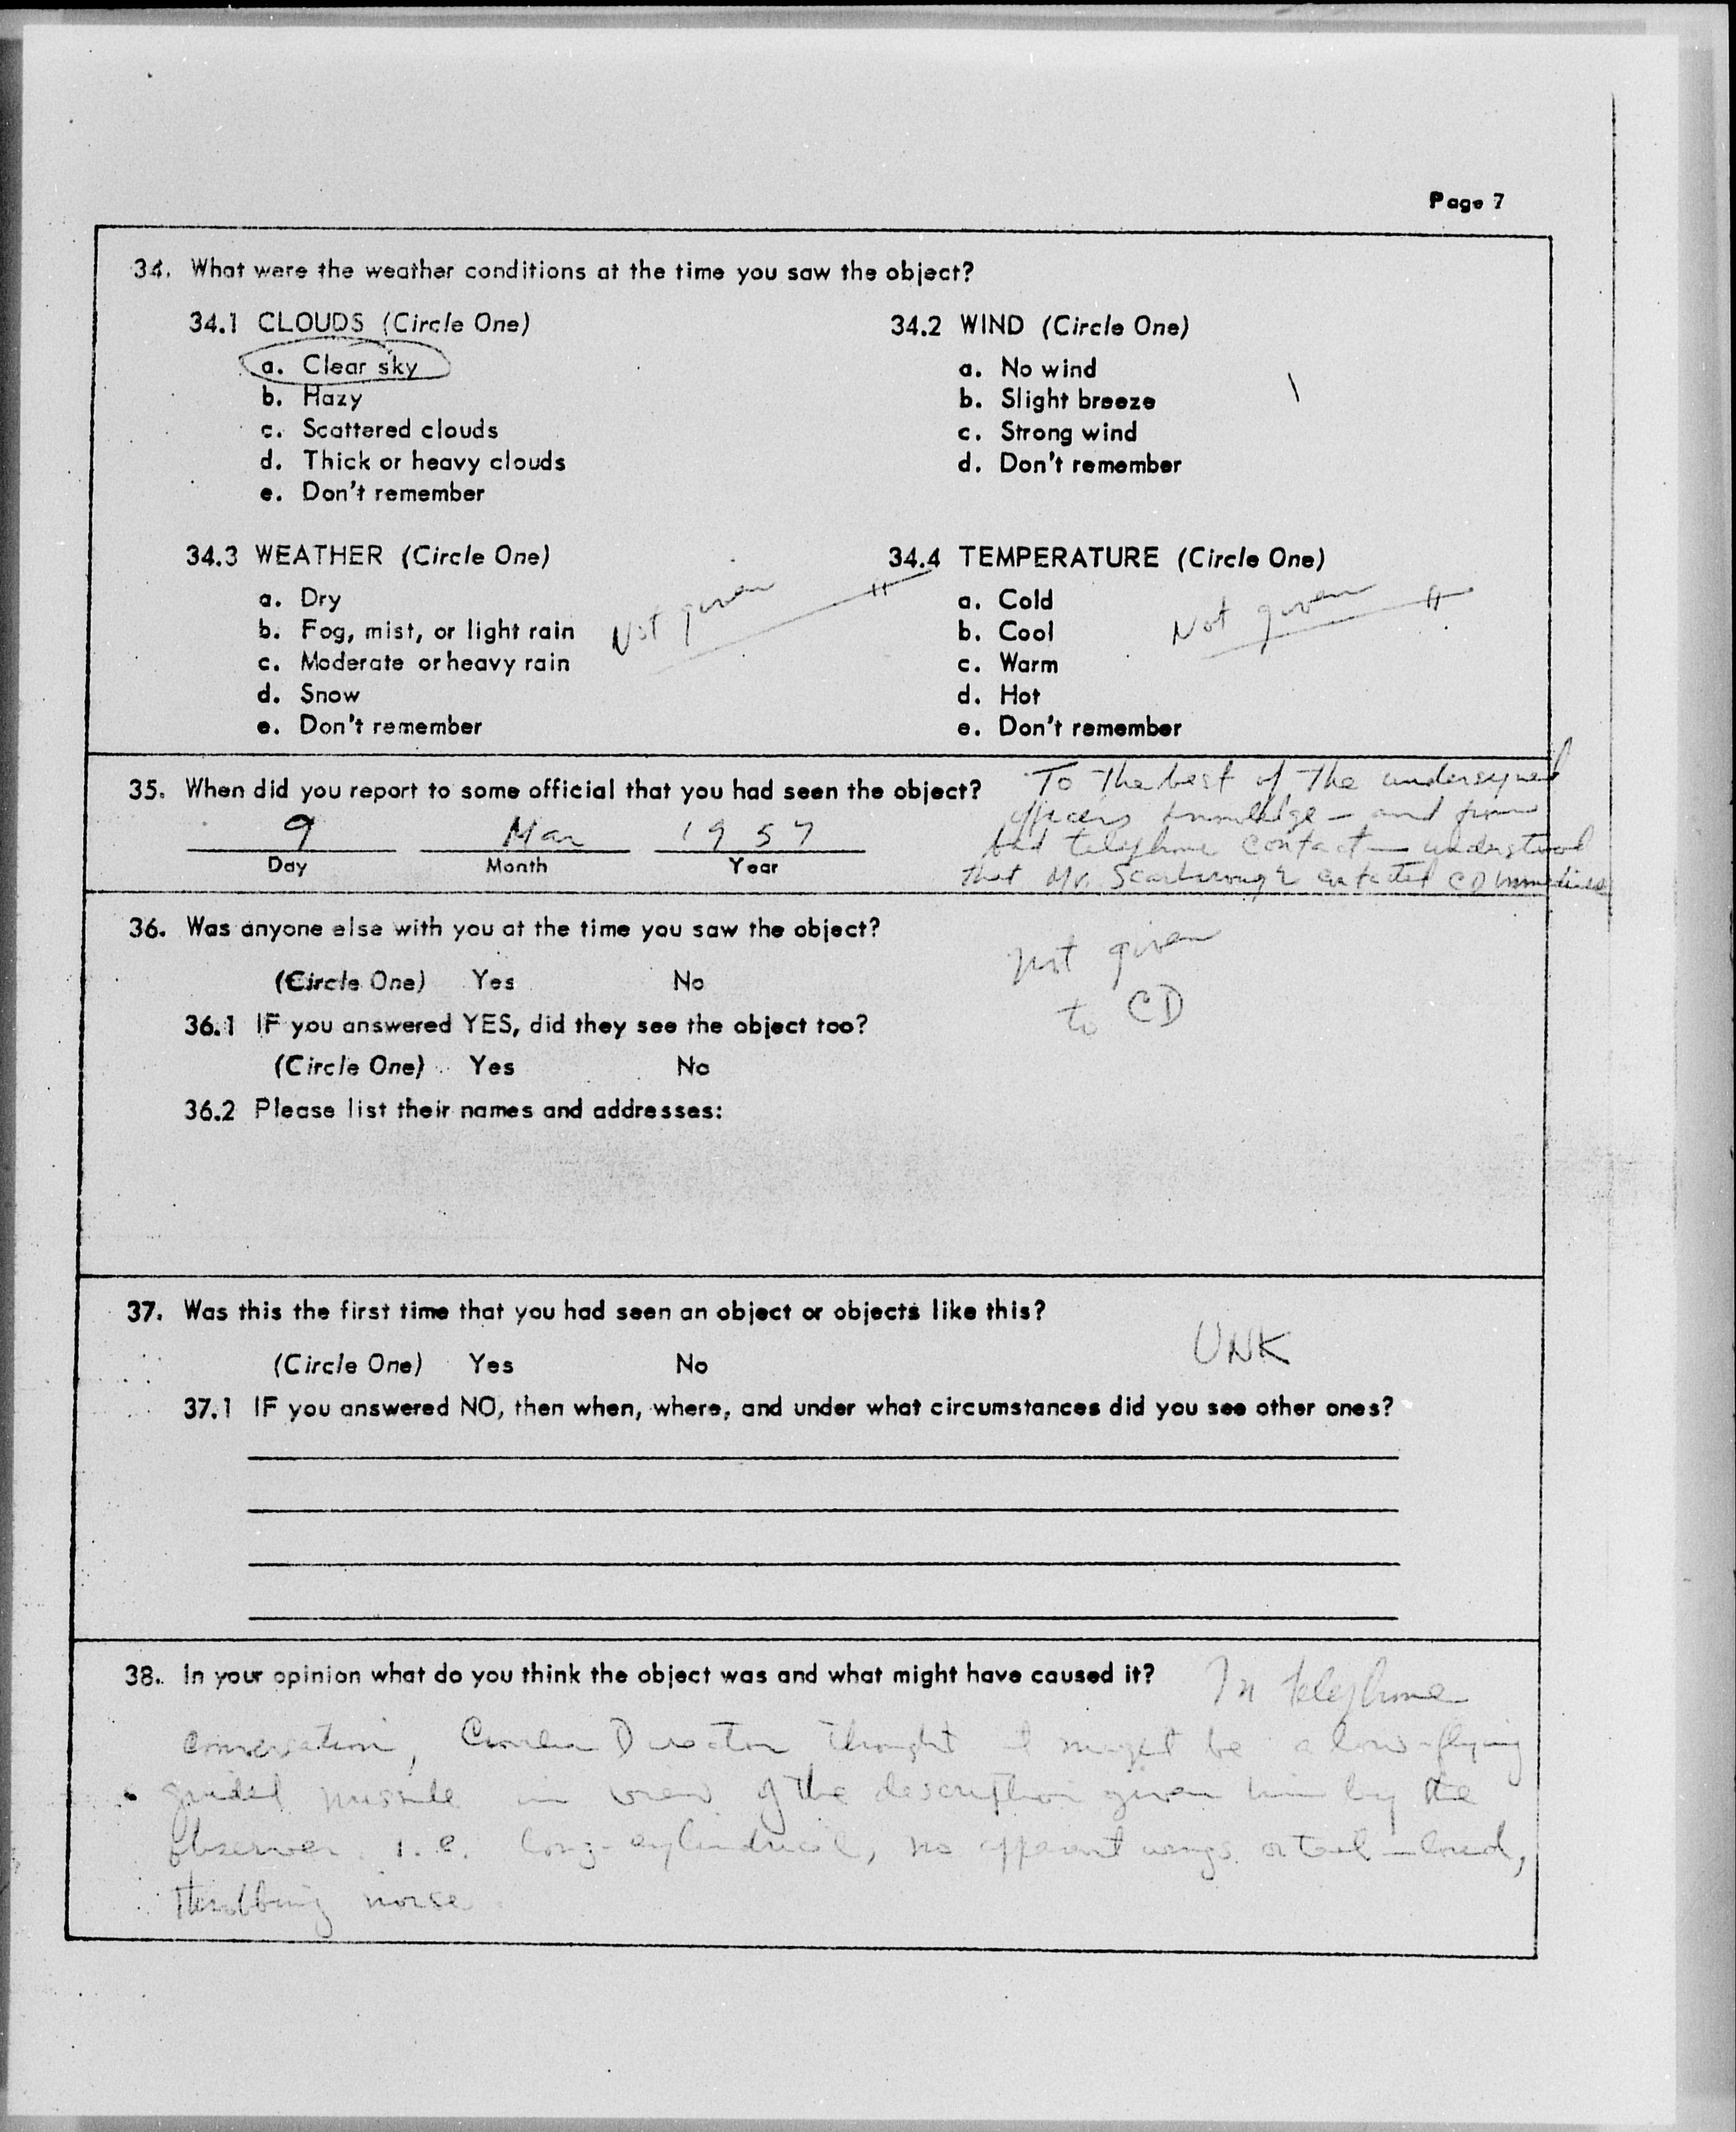 Page 7
34. What were the weather conditions at the time you saw the object?
34.1 CLOUDS (Circle One)
a. Clear sky
b. Hazy
c. Scattered clouds
d. Thick or heavy clouds
e. Don't remember
34.2 WIND (Circle One)
a. No wind
b. Slight breeze
c. Strong wind
d. Don't remember
34.3 WEATHER (Circle One)
a. Dry
b. Fog, mist, or light rain
c. Moderate or heavy rain
d. Snow
e. Don't remember
Not given
34.4 TEMPERATURE (Circle One)
a. Cold
b. Cool
c. Warm
d. Hot
e. Don't remember
Not given
35. When did you report to some official that you had seen the object?
9 Mar 1957
Day Month Year
To the best of the undersigned
officers knowledge - and from
telephone contact - understood
that Mr. Scarborough contacted CD
36. Was anyone else with you at the time you saw the object?
(Circle One) Yes No
not given
to CD
36.1 IF you answered YES, did they see the object too?
(Circle One) Yes No
36.2 Please list their names and addresses:
37. Was this the first time that you had seen an object or objects like this?
(Circle One) Yes No
UNK
37.1 IF you answered NO, then when, where, and under what circumstances did you see other ones?
38. In your opinion what do you think the object was and what might have caused it? In telephone
conversation, Director thought it might be a low-flying
guided missile in view of the description given him by the
observer i.e. long-cylindrical, no apparent wings or tail - loud,
throbbing noise